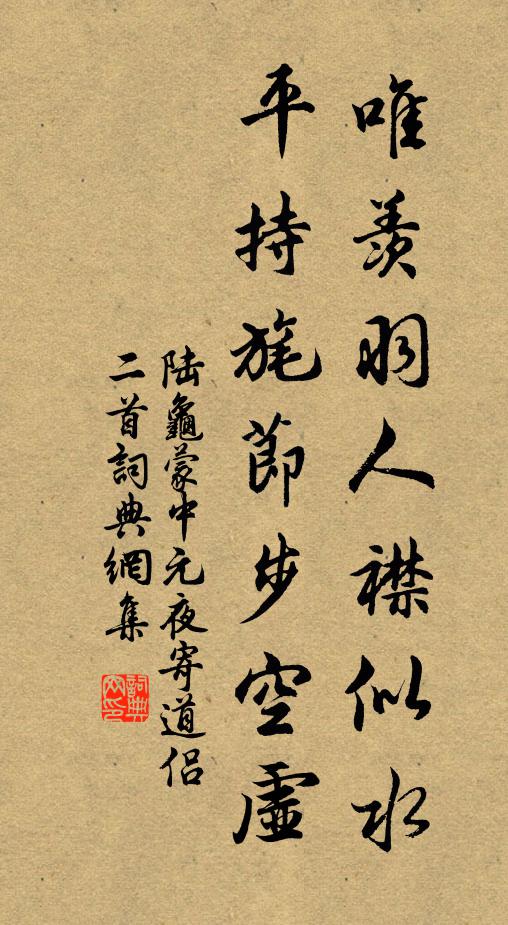 唯羨羽人襟似水
平持旄節步空虛
陆龜蒙中元夜寄道侶
二首詞典網集
詞典